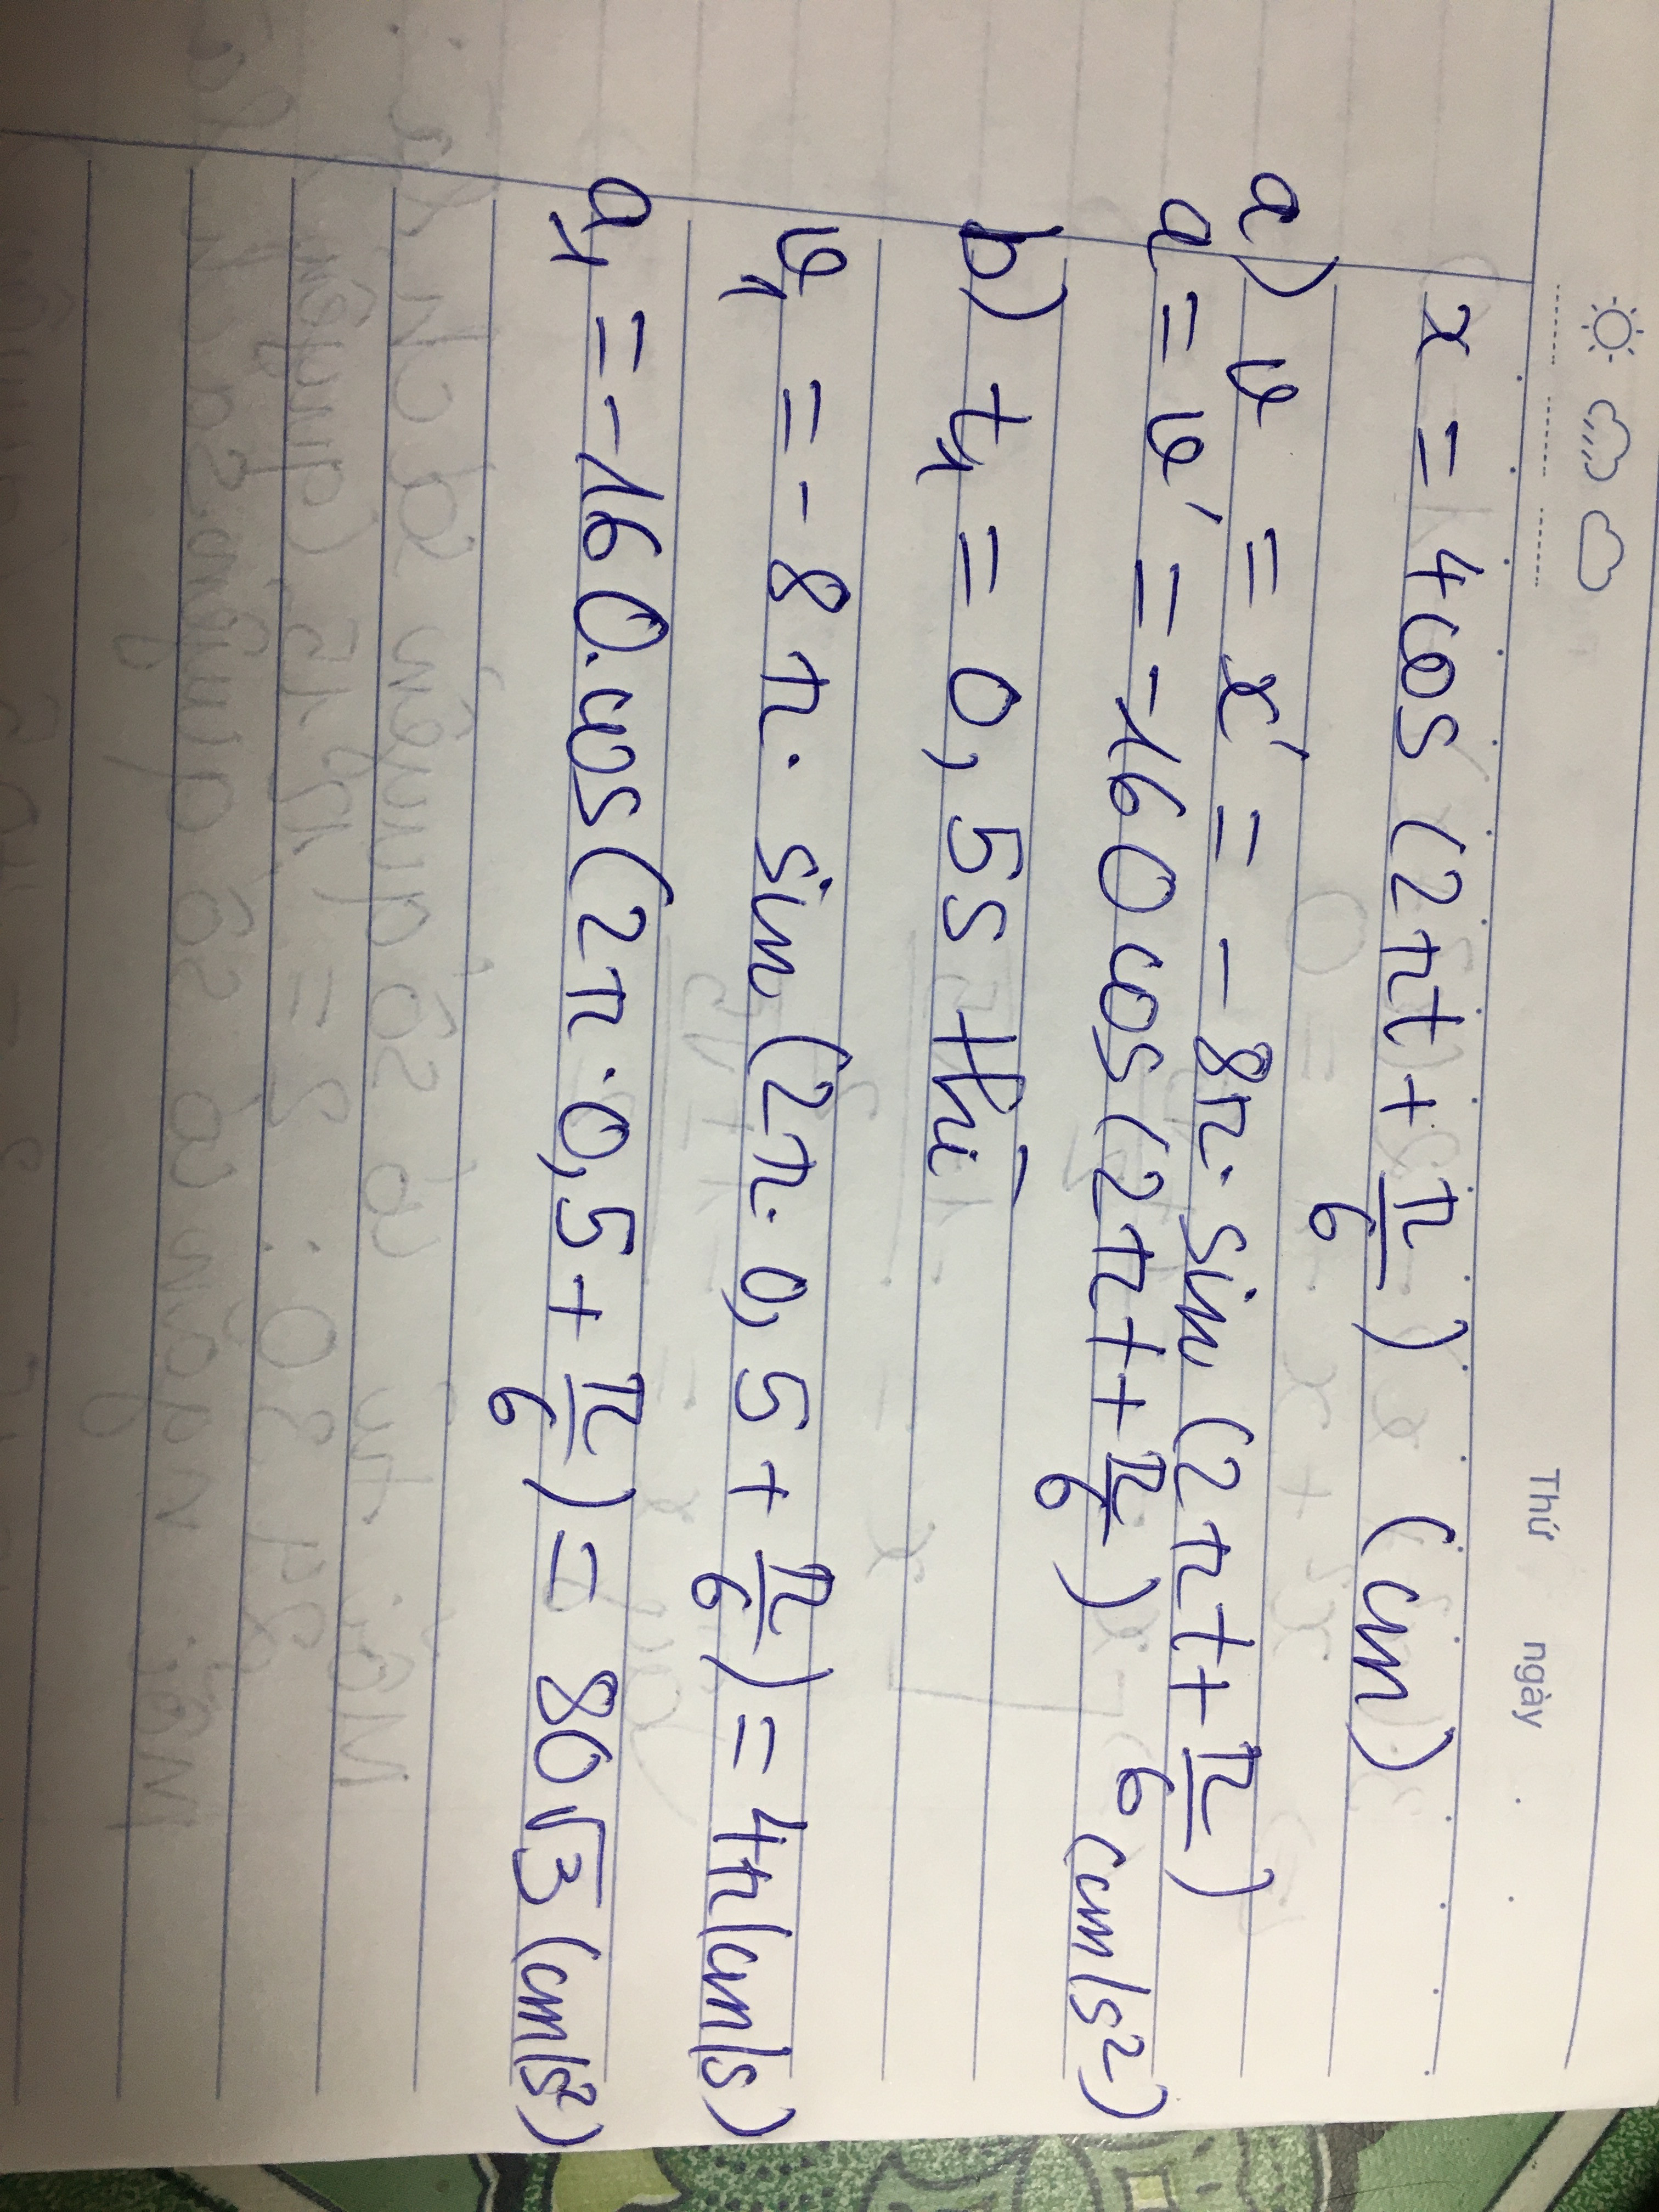 Thứ ngày
x = 4cos (2πt + π/6) (cm)
a) v = x' = - 8π. sin (2πt + π/6)
a = v' = -160 cos (2πt + π/6) (cm/s²)
b) t₁ = 0,5s thì
v₁ = - 8π. sin (2π. 0,5 + π/6) = 4π (cm/s)
a₁ = -160. cos (2π. 0,5 + π/6) = 80√3 (cm/s²)